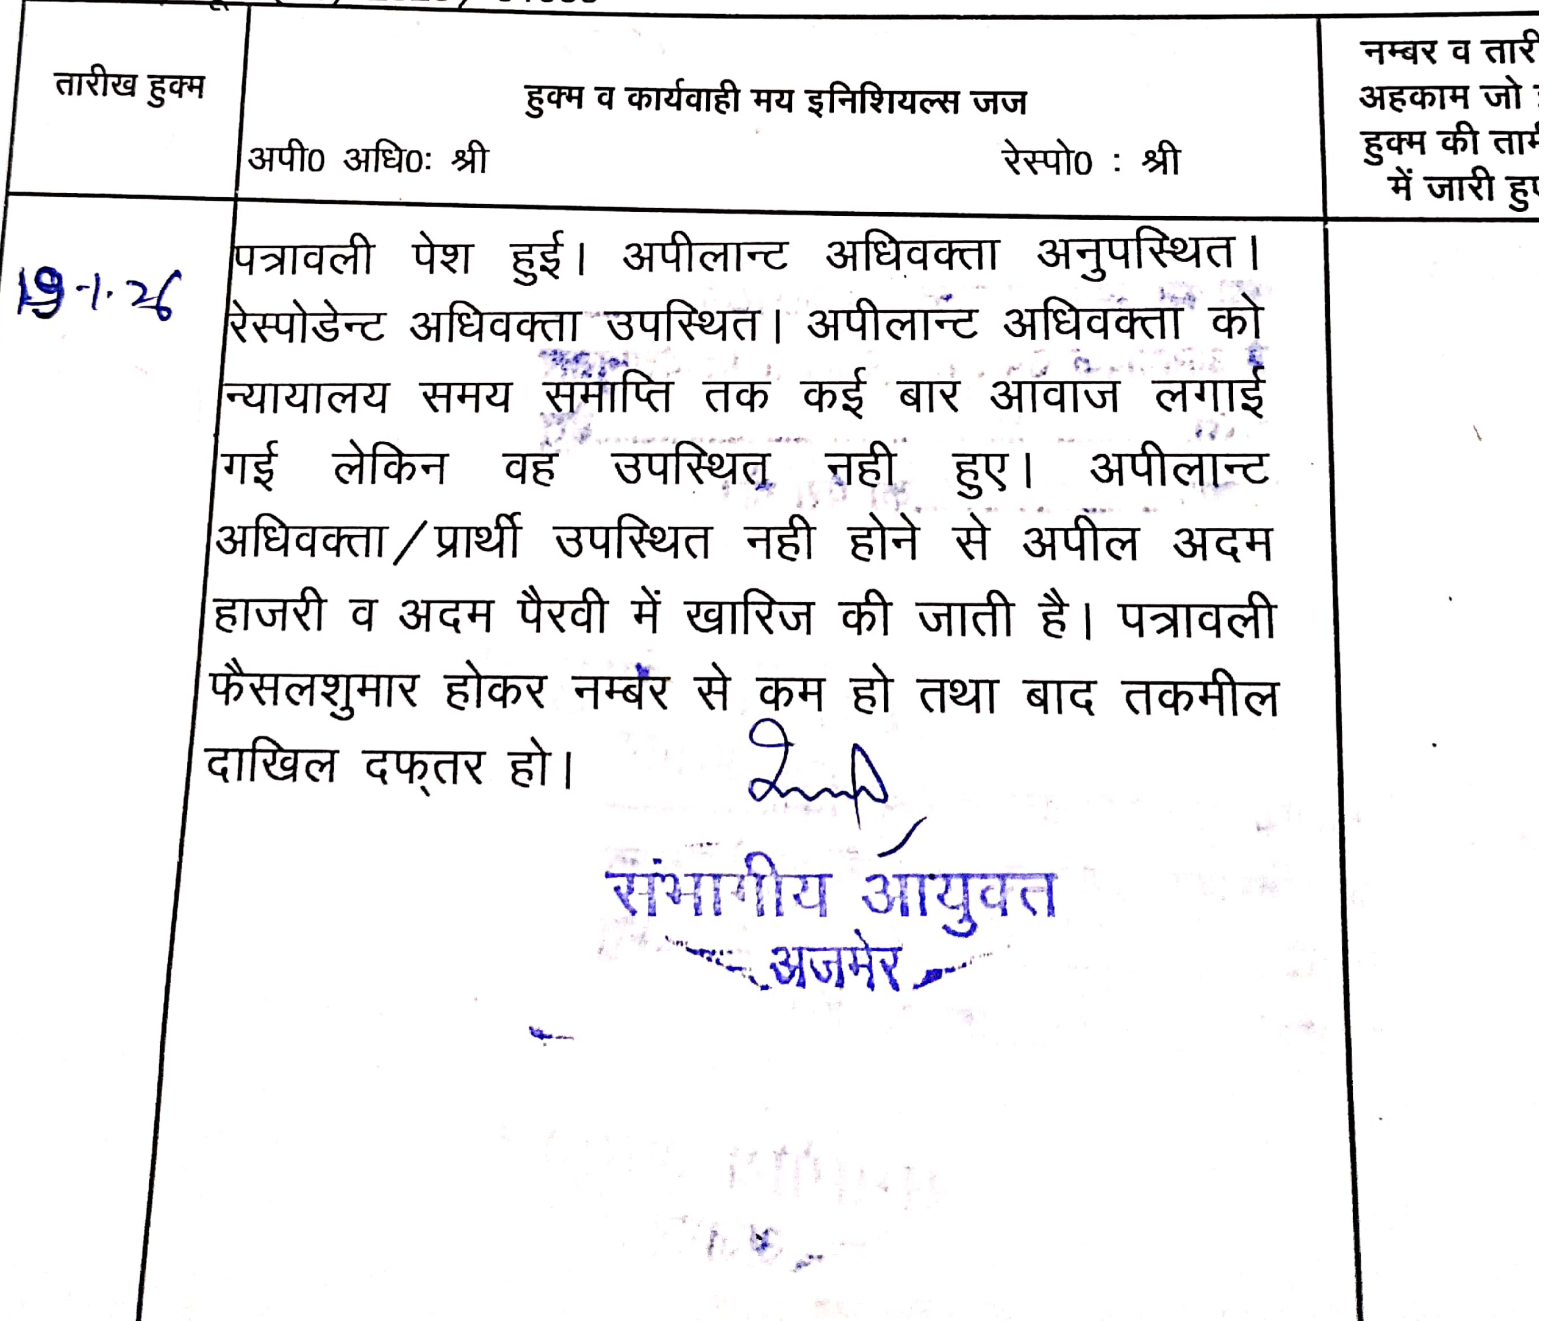 तारीख हुक्म
हुक्म व कार्यवाही मय इनिशियल्स जज
अपी0 अधि0: श्री रेस्पो0 : श्री
नम्बर व तारी
अहकाम जो
हुक्म की ताम
में जारी हुए
19-1-26
पत्रावली पेश हुई। अपीलान्ट अधिवक्ता अनुपस्थित।
रेस्पोडेन्ट अधिवक्ता उपस्थित। अपीलान्ट अधिवक्ता को
न्यायालय समय समाप्ति तक कई बार आवाज लगाई
गई लेकिन वह उपस्थित नही हुए। अपीलान्ट
अधिवक्ता/प्रार्थी उपस्थित नही होने से अपील अदम
हाजरी व अदम पैरवी में खारिज की जाती है। पत्रावली
फैसलशुमार होकर नम्बर से कम हो तथा बाद तकमील
दाखिल दफ्तर हो।
संभागीय आयुक्त
अजमेर